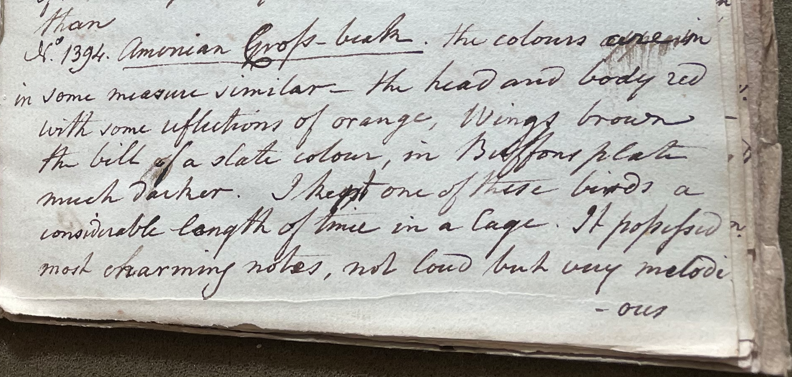 than
No. 1394. Amenian Gross-beak. the colours are in
in some measure similar - the head and body red
with some reflections of orange, Wings brown
the bill of a slate colour, in Buffons plate
much darker. I kept one of these birds a
considerable length of time in a Cage. It possessed
most charming notes, not loud but very melodi
-ous